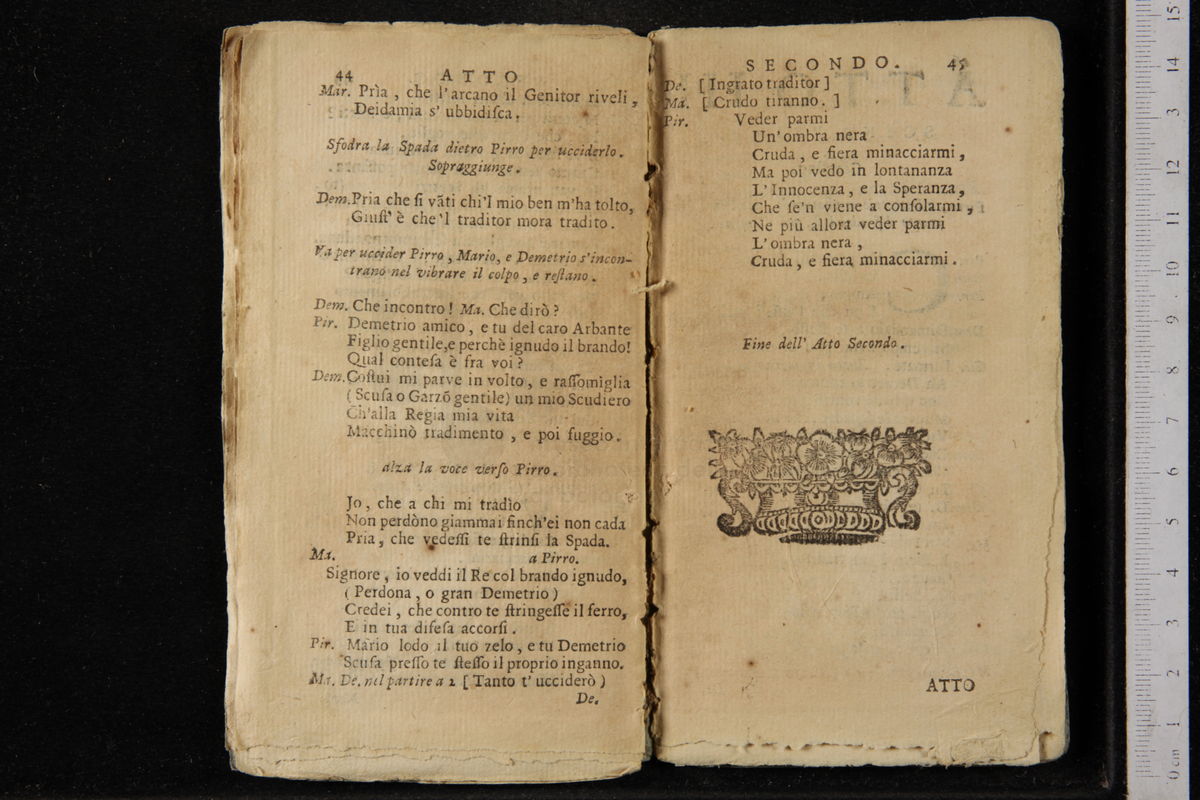 44 ATTO
Mar. Prìa , che l'arcano il Genitor riveli ,
Deidamia s' ubbidiſca .
Sfodra la Spada dietro Pirro per ucciderlo .
Sopraggiunge .
Dem. Pria che ſi vāti chi'l mio ben m'ha tolto,
Giuſt' è che'l traditor mora tradito .
Va per uccider Pirro , Mario, e Demetrio s'incon-
trano nel vibrare il colpo , e reſtano .
Dem. Che incontro ! Ma. Che dirò ?
Pir. Demetrio amico , e tu del caro Arbante
Figlio gentile,e perchè ignudo il brando!
Qual conteſa è fra voi ?
Dem. Coſtui mi parve in volto , e raſſomiglia
( Scuſa o Garzō gentile) un mio Scudiero
Ch'alla Regia mia vita
Macchinò tradimento , e poi fuggio .
alza la voce verſo Pirro .
Jo , che a chi mi tradìo
Non perdòno giammai finch'ei non cada
Pria , che vedeſſi te ſtrinſi la Spada.
Ma. a Pirro.
Signore , io veddi il Re col brando ignudo,
( Perdona , o gran Demetrio )
Credei , che contro te ſtringeſſe il ferro,
E in tua difeſa accorſi .
Pir. Mario lodo il tuo zelo , e tu Demetrio
Scuſa preſſo te ſteſſo il proprio inganno.
Ma. De. nel partire a 2 [ Tanto t' ucciderò )
De.
SECONDO. 45
De. [ Ingrato traditor ]
Ma. [ Crudo tiranno. ]
Pir. Veder parmi
Un' ombra nera
Cruda , e fiera minacciarmi ,
Ma poi vedo in lontananza
L' Innocenza , e la Speranza ,
Che ſe'n viene a conſolarmi ,
Ne più allora veder parmi
L' ombra nera ,
Cruda , e fiera minacciarmi .
Fine dell' Atto Secondo .
ATTO
0 cm 1 2 3 4 5 6 7 8 9 10 11 12 13 14 15